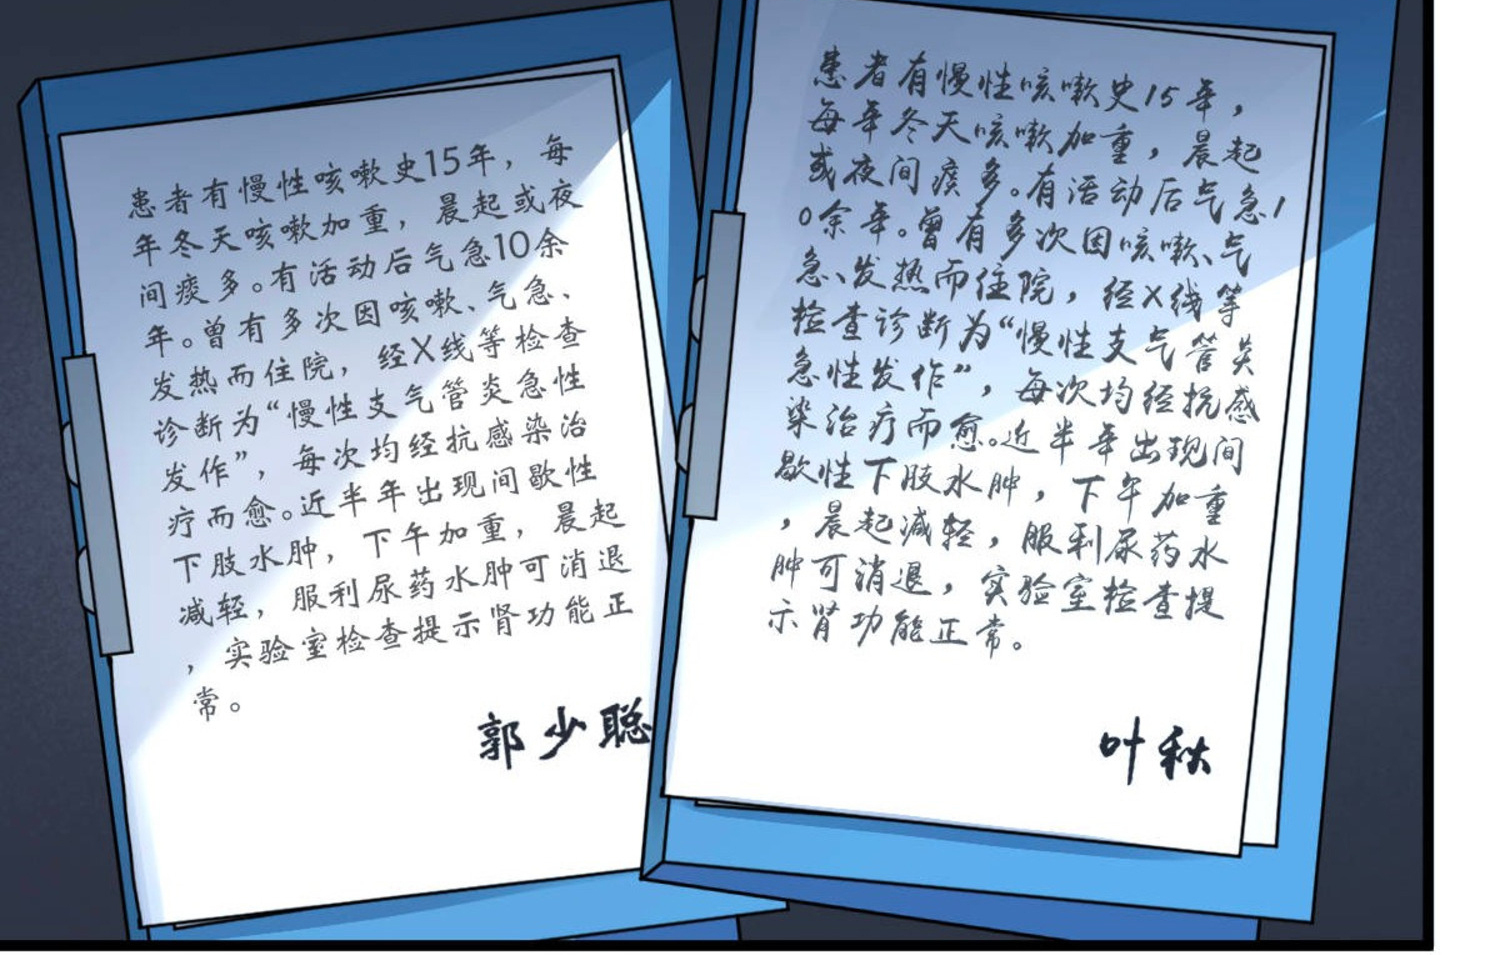 患者有慢性咳嗽史15年，每
年冬天咳嗽加重，晨起或夜
间痰多。有活动后气急10余
年。曾有多次因咳嗽、气急、
发热而住院，经X线等检查
诊断为“慢性支气管炎急性
发作”，每次均经抗感染治
疗而愈。近半年出现间歇性
下肢水肿，下午加重，晨起
减轻，服利尿药水肿可消退
，实验室检查提示肾功能正
常。
郭少聪
患者有慢性咳嗽史15年，
每年冬天咳嗽加重，晨起
或夜间痰多。有活动后气急1
0余年。曾有多次因咳嗽、气
急、发热而住院，经X线等
检查诊断为“慢性支气管炎
急性发作”，每次均经抗感
染治疗而愈。近半年出现间
歇性下肢水肿，下午加重
，晨起减轻，服利尿药水
肿可消退，实验室检查提
示肾功能正常。
叶秋